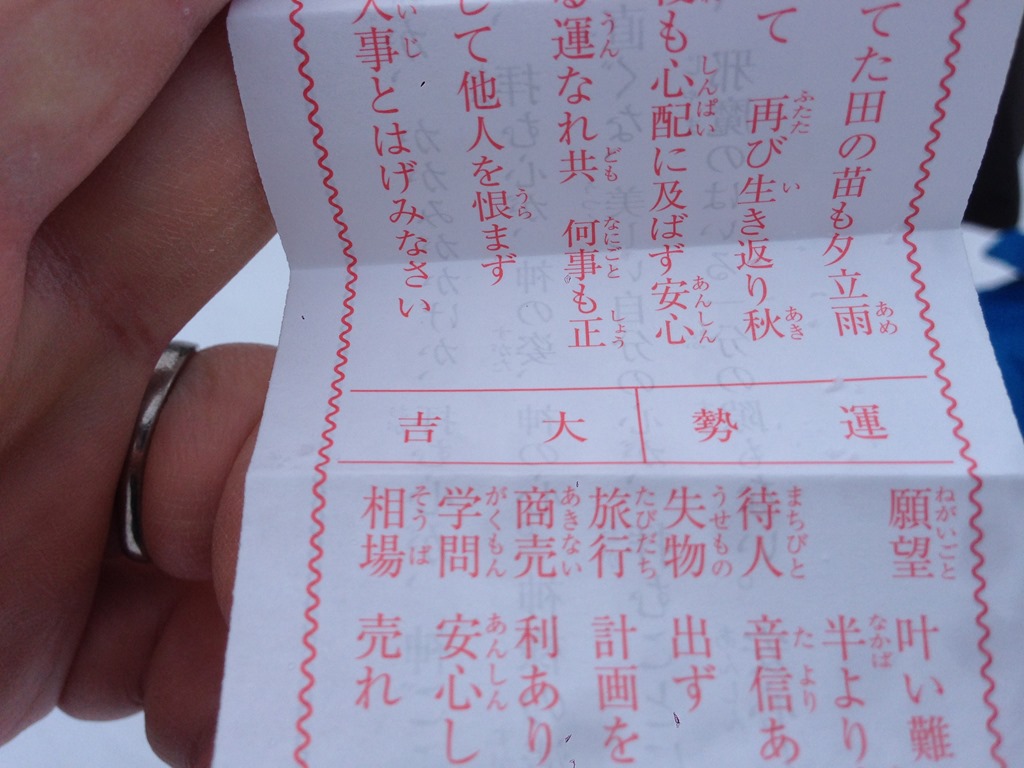 てた田の苗も夕立雨
て 再び生き返り秋
も心配に及ばず安心
る運なれ共 何事も正
して他人を恨まず
人事とはげみなさい
運勢 大吉
願望 叶い難
半より
待人 音信あ
失物 出ず
旅行 計画を
商売 利あり
学問 安心し
相場 売れ